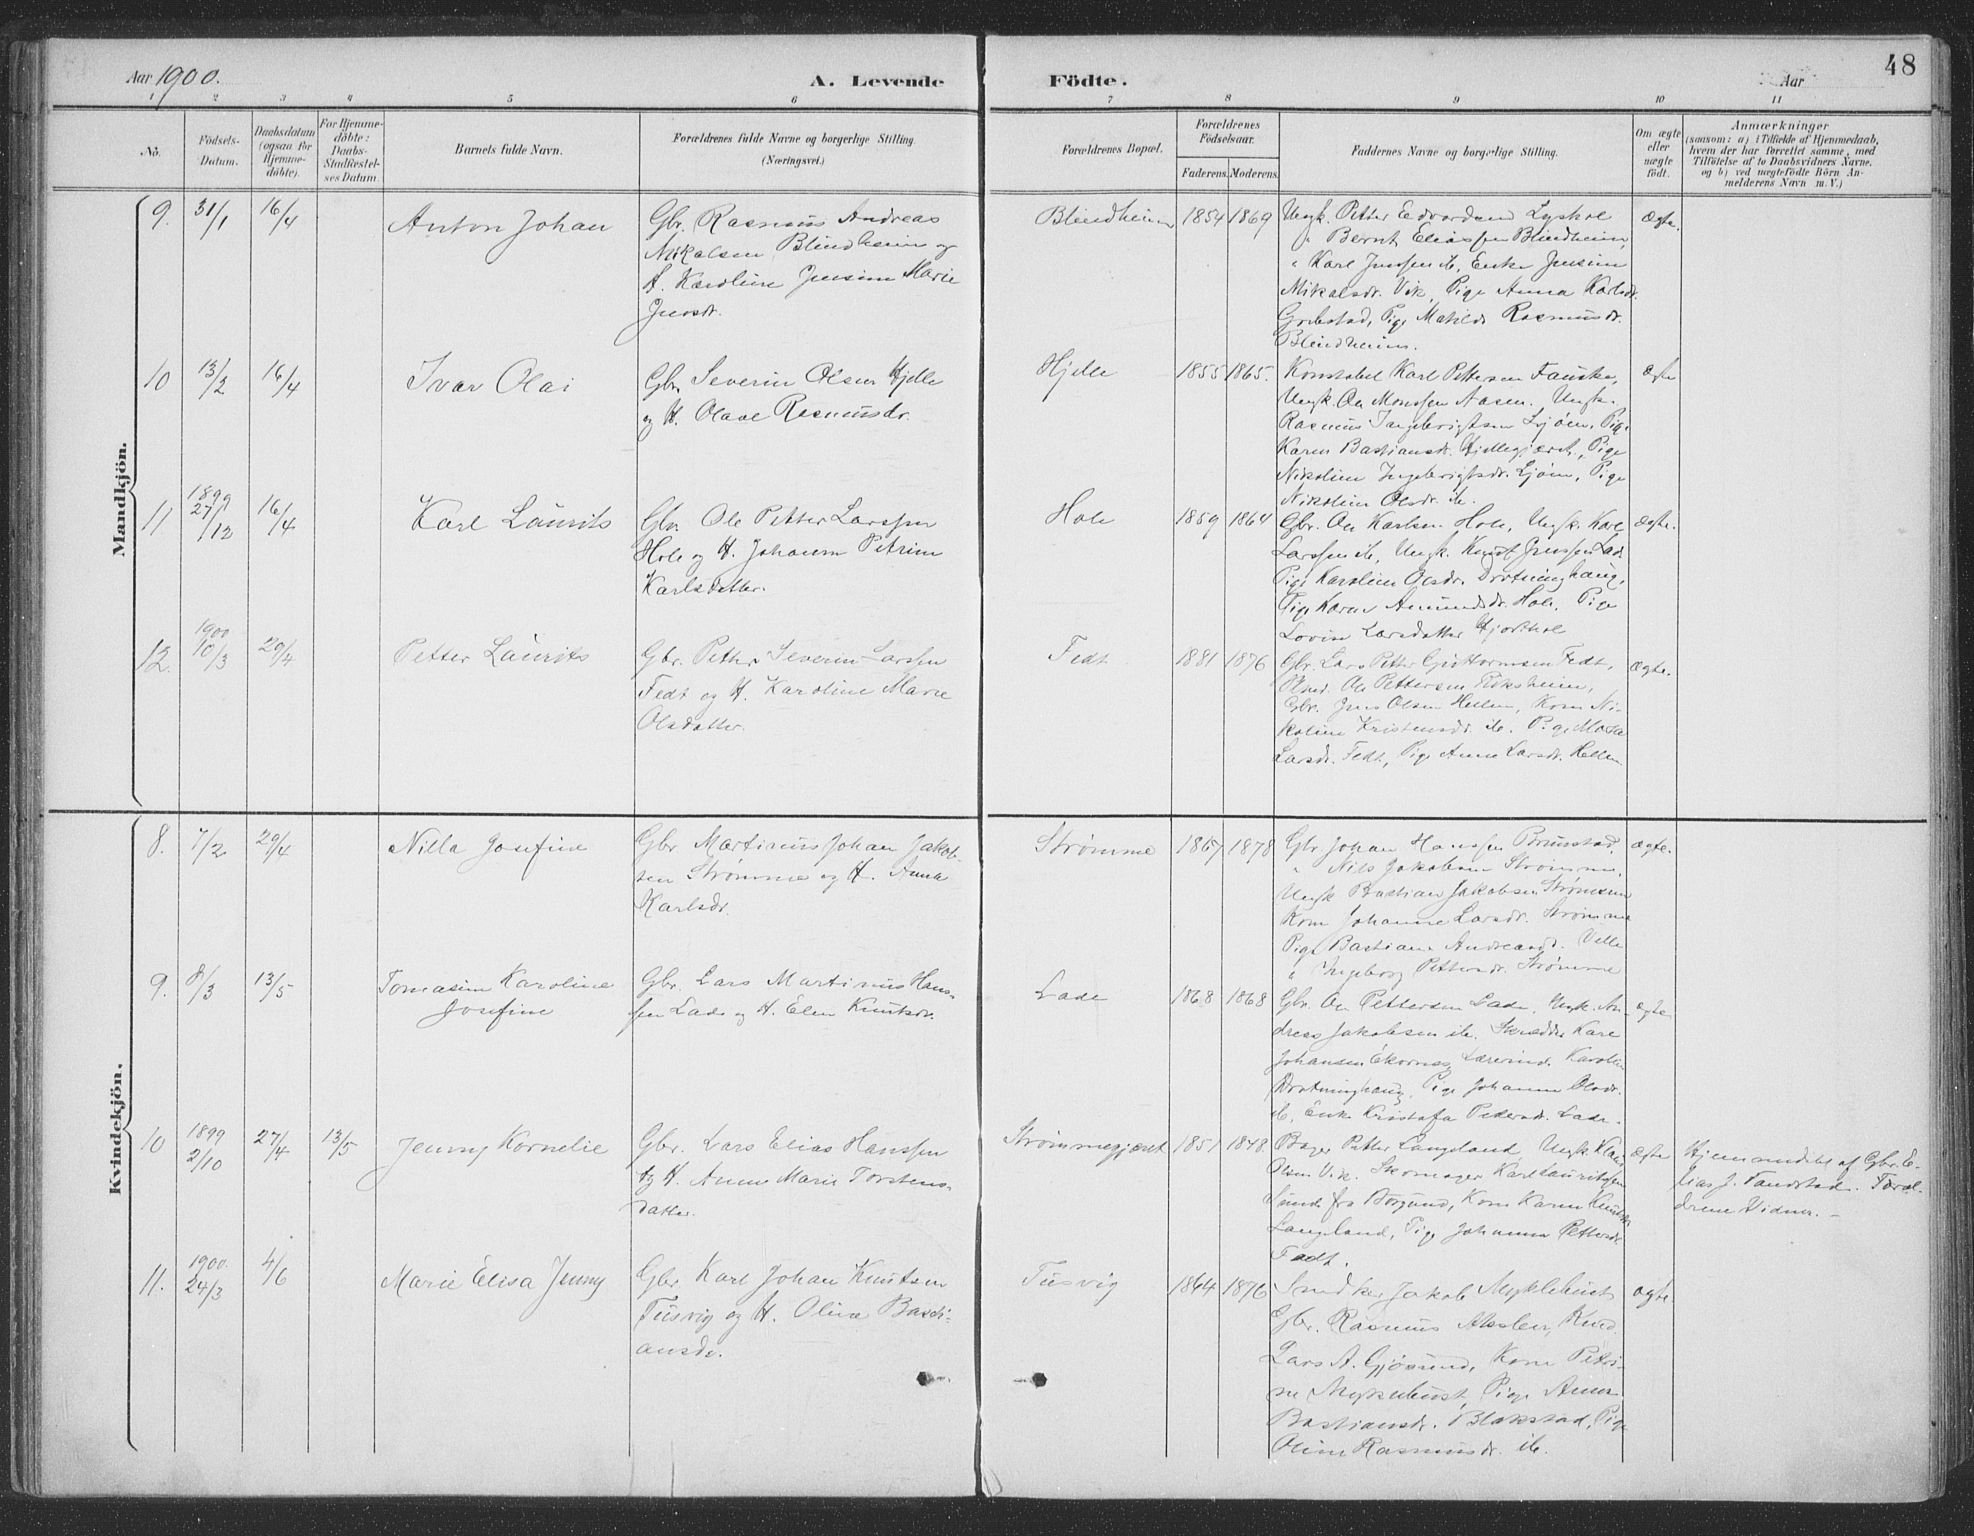 Aar 1900.
A. Levende
Födte.
Aar
48
1 2 3 4 5 6 7 8 9 10 11
No.
Födsels-
Datum.
Daabsdatum
(ogsaa for
Hjemme-
döbte).
For Hjemme-
döbte:
Daabs-
Stadfæstel-
ses Datum.
Barnets fulde Navn.
Forældrenes fulde Navne og borgerlige Stilling.
(Næringsvei.)
Forældrenes Bopæl.
Forældrenes
Födselsaar.
Faderens. Moderens.
Faddernes Navne og borgerlige Stilling.
Om ægte
eller
uægte
födt.
Anmærkninger
(saasom: a) i Tilfælde af Hjemmedaab,
hvem der har forrettet samme, med
Tilföielse af to Daabsvidners Navne,
og b) ved uægtefödte Börn An-
melderens Navn m. V.)
Mandkjön.
9. 31/1 16/4
Anton Johan
Gbr. Rasmus Andreas
Nikolsen Blindheim og
H. Karoline Jensine Marie
Jensdr.
Blindheim 1854 1869
Ungk. Petter Edvardsen Lyshol
" Bernt Eliassen Blindheim
" Karl Jenssen ib, Enke Jensine
Mikalsdr. Vik, Pige Anna Karlsdr.
Grebstad, Pige Matilde Rasmusdr.
Blindheim.
ægte.
10 13/2 16/4
Ivar Olai
Gbr. Severin Olsen Hjelle
og H. Olave Rasmusdr.
Hjelle 1855 1865.
Konstabel Karl Pettersen Fauske,
Ungk. Ole Monssen Aasen. Ungk.
Rasmus Ingebrigtsen Ljöen, Pige
Karen Bastiansdr. Hjellegjæret, Pige
Nikoline Ingebrigtsdr. Ljöen, Pige
Nikoline Olsdr. ib.
ægte
11 1899
27/12 16/4
Karl Laurits
Gbr. Ole Petter Larssen
Hole og H. Johanne Petrine
Karlsdatter.
Hole 1859 1864
Gbr. Ole Karlsen Hole, Ungk. Karl
Larssen ib, Ungk. Knut Jenssen Lade
Pige Karoline Olsdr. Drotninghaug,
Pige Karen Amundsdr. Hole, Pige
Lovise Larsdatter Hjorthol
ægte.
12. 1900
10/3 29/4
Petter Laurits
Gbr. Petter Severin Larssen
Fedt og H. Karoline Marie
Olsdatter.
Fedt 1881 1876
Gbr. Lars Petter Guttormsen Fedt,
Ole Pettersen
Gbr. Jens Olsen Hellen, Kone Ni-
koline Kristensdr. ib. Pige
Larsdr. Fedt, Pige Anne Larsdr. Hellen
ægte.
Kvindekjön.
8. 7/2 29/4
Nilla Josefine
Gbr Martinus Johan Jakob-
sen Strømme og H. Anna
Karlsdr.
Strømme 1867 1878
Gbr. Johan Hanssen Brunstad,
" Nils Jakobsen Strømme,
Ungk Bastian Jakobsen Strømmen
Kone Johanne Larsdr. Strømme
Pige Bastiane Andreasdr. Velle
" Ingeborg Pettersdr. Strømme
ægte.
9. 8/3 13/5
Tomasine Karoline
Josefine
Gbr. Lars Martinus Hans-
sen Lade og H. Elen Knutsdr.
Lade 1868 1868
Gbr. Ole Pettersen Lade, Ungk. An-
dreas Jakobsen ib. Skrædder Karl
Johansen Ekornes, Lærerinde Karoline
Drotninghaug, Pige Johanne Olsdr.
ib, Enke Kristofa Pedersdr. Lade.
ægte
10 1899
2/10 27/4 13/5
Jenny Kornelie
Gbr. Lars Elias Hanssen
og H. Anne Marie Torstens-
datter.
Strømmegjæret 1851 1848.
Bager Petter Langeland, Ungk Klaus
Olsen Vik. Skomager Karl Lauritssen
Sund fra Borgund, Kone Karen Knutsdr.
Langeland, Pige Johanne Pettersdr.
Fedt.
ægte
Hjemmedöbt af Gbr. E-
lias J. Tandstad. Foræl-
drene Vidner. -
11. 1900.
24/3 4/6
Marie Elisa Jenny
Gbr. Karl Johan Knutsen
Tusvig og H. Oline Basti-
ansdr.
Tusvig 1864 1876
Snedker Jakob Myklebust
Gbr. Rasmus
Lars A. Gjøsund, Kone Petri-
ne Myklebust, Pige Anne
Bastiansdr. Blakstad, Pige
Oline Rasmusdr. ib.
ægte.